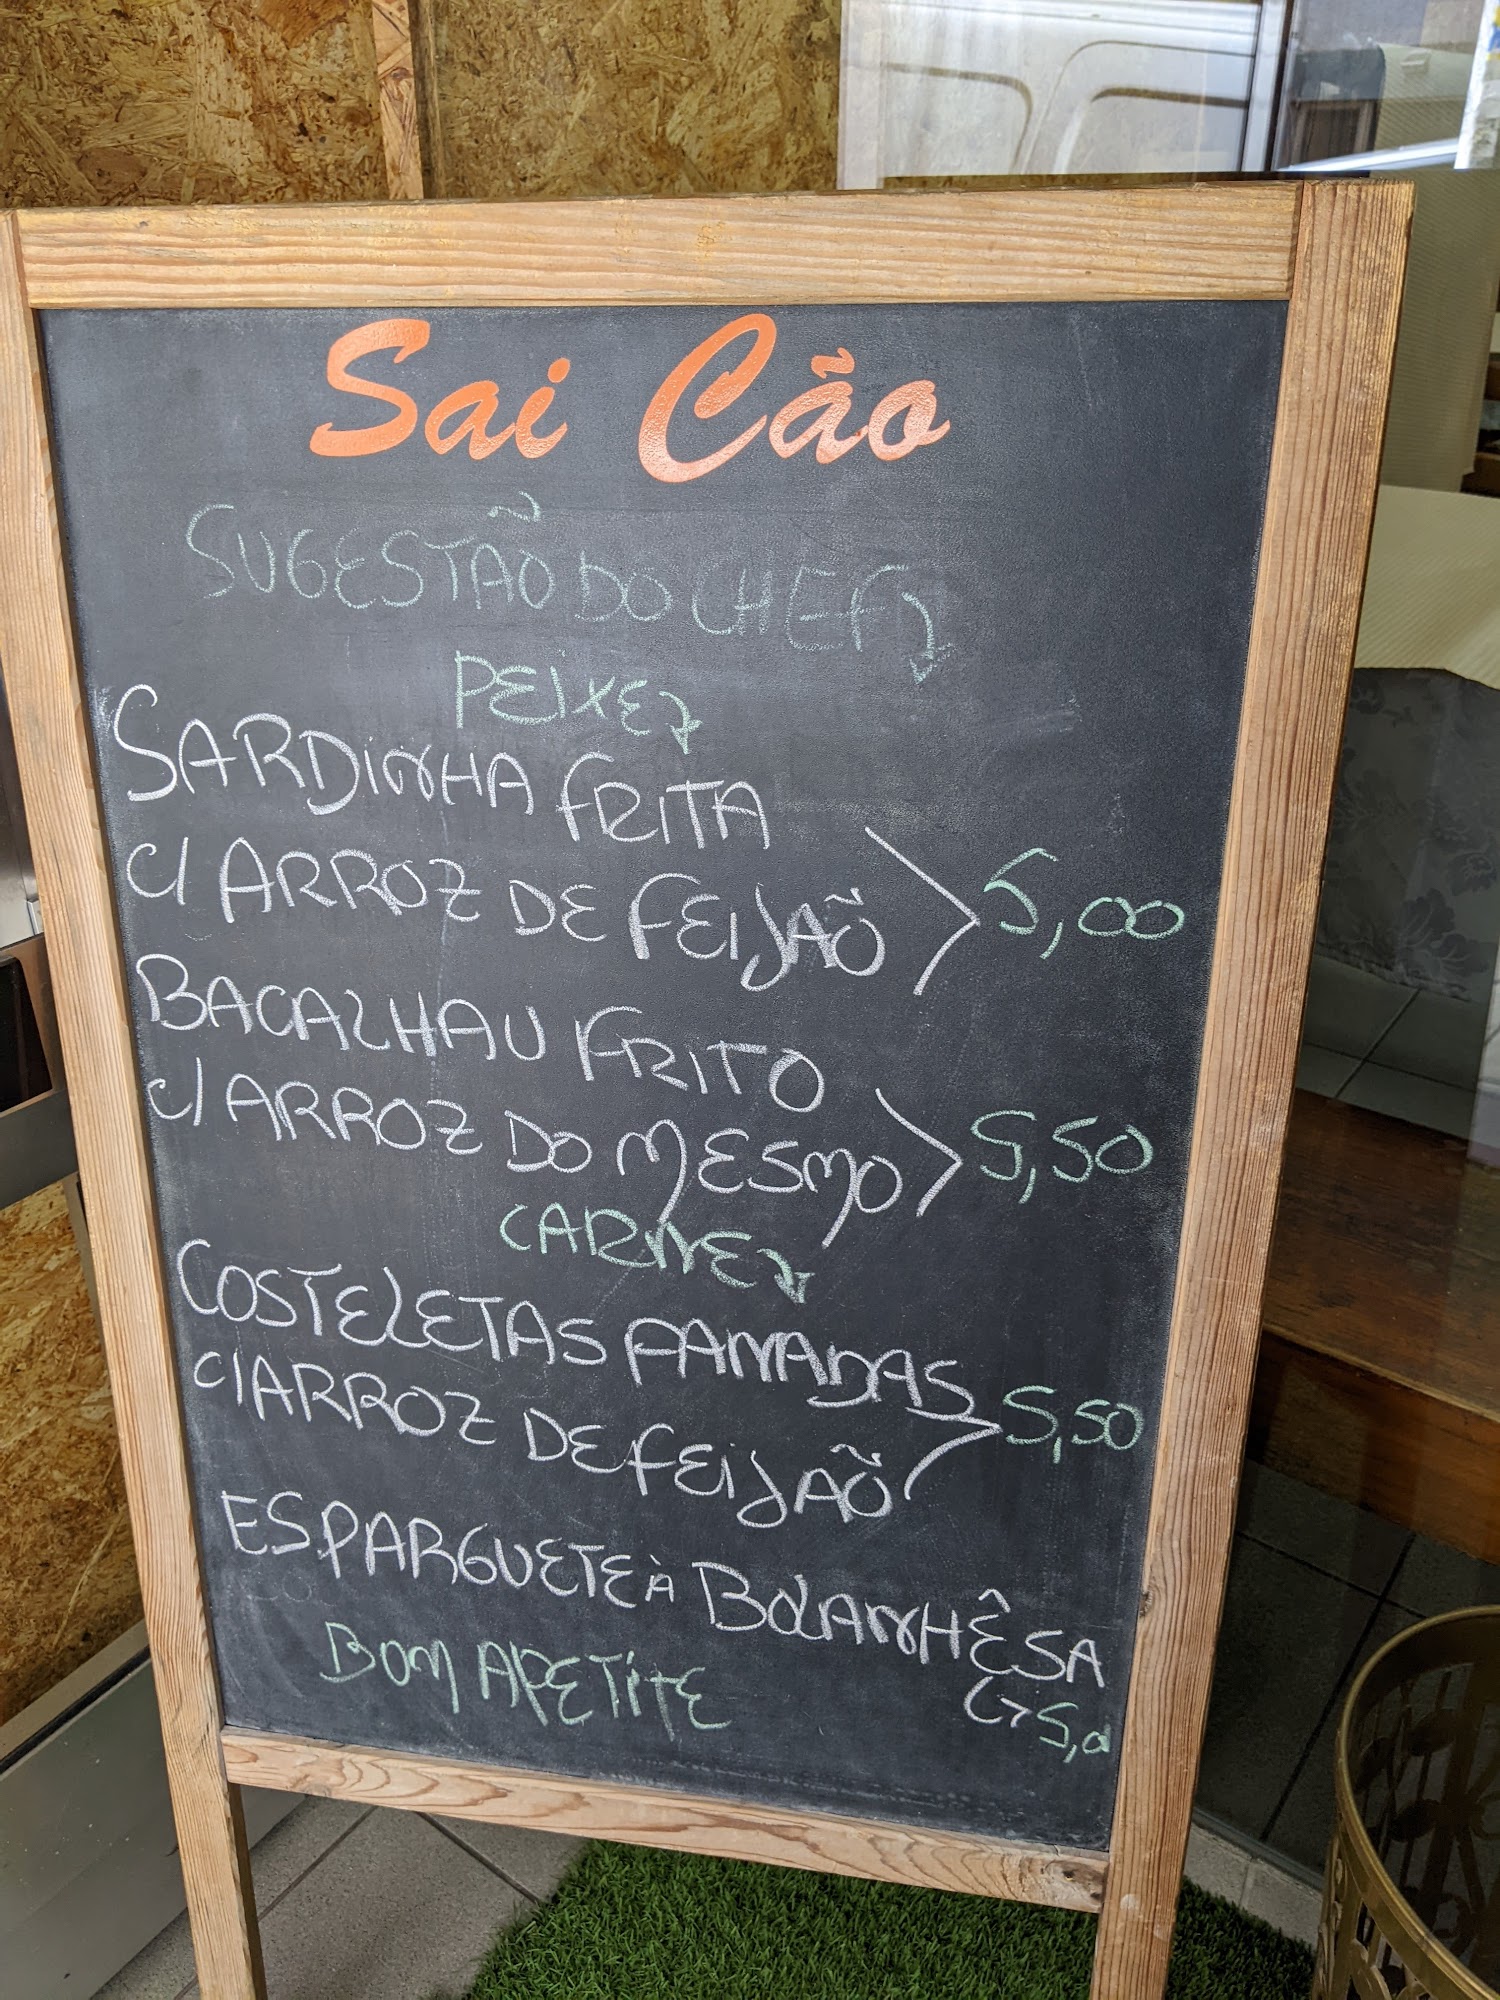 Sai Cão
SUGESTÃO DO CHEF
PEIXE
SARDINHA FRITA
C/ ARROZ DE FEIJÃO 5,00
BACALHAU FRITO
C/ ARROZ DO MESMO 5,50
CARNE
COSTELETAS PANADAS
C/ ARROZ DE FEIJÃO 5,50
ESPARGUETE À BOLANHÊSA
BOM APETITE